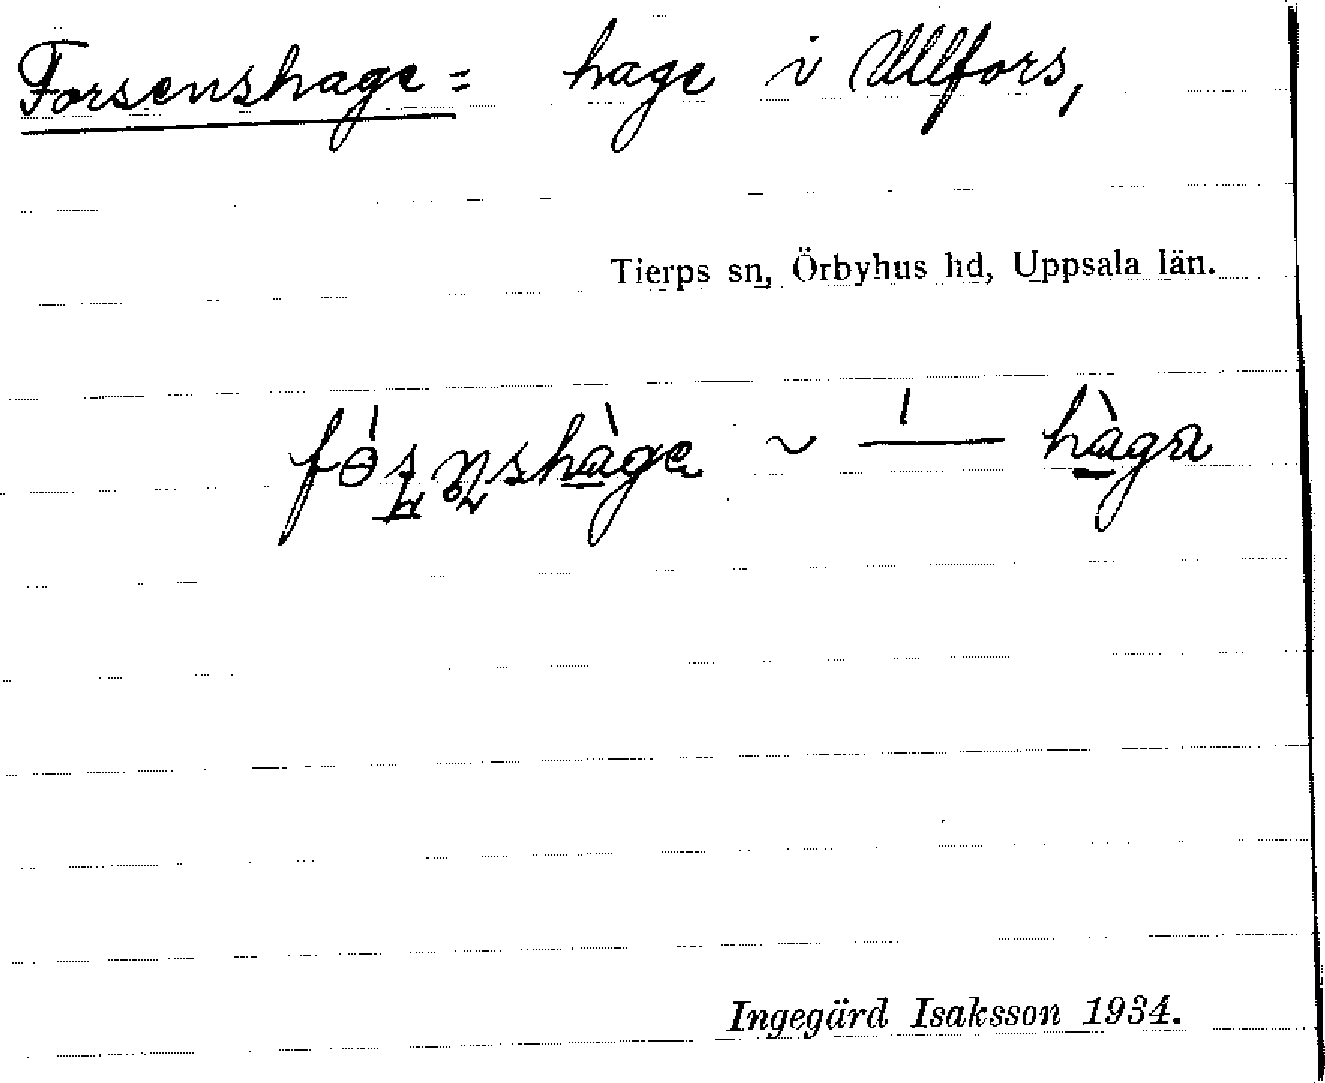 Forsenshage = hage i Ullfors,
Tierps sn, Örbyhus hd, Uppsala län.
~ — hàga
Ingegärd Isaksson 1934.